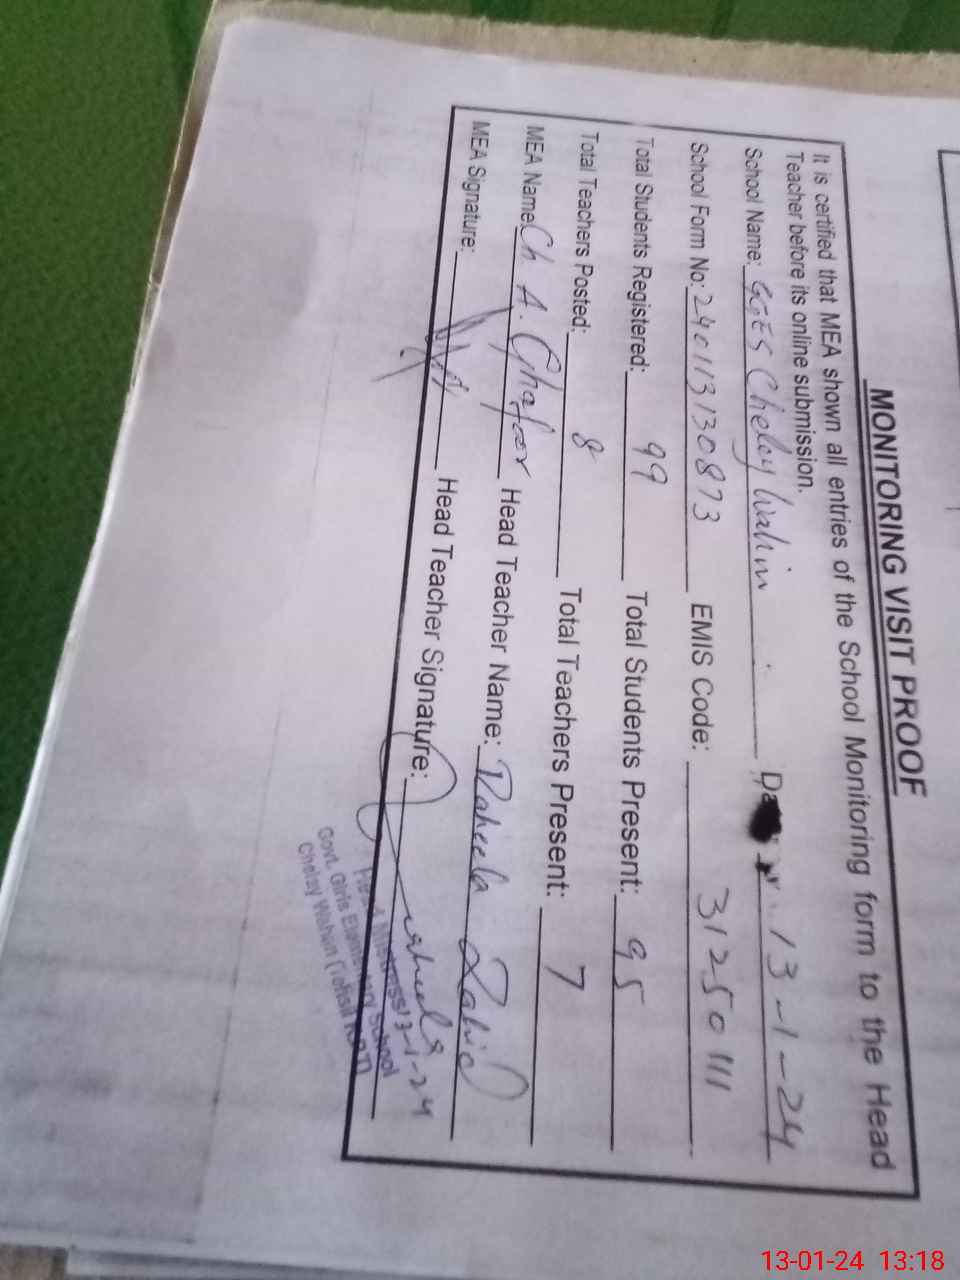 MONITORING VISIT PROOF
It is certified that MEA shown all entries of the School Monitoring form to the Head
Teacher before its online submission.
School Name: GGES Chelay Wahin Da 13-1-24
School Form No: 240113130873 EMIS Code: 31250111
Total Students Registered: 99 Total Students Present: 95
Total Teachers Posted: 8 Total Teachers Present: 7
MEA Name: Ch A. Ghafoor Head Teacher Name: Raheela Zahid
MEA Signature: Head Teacher Signature:
13-1-24
Govt. Girls Elementary School
Chelay Wahan
13-01-24 13:18